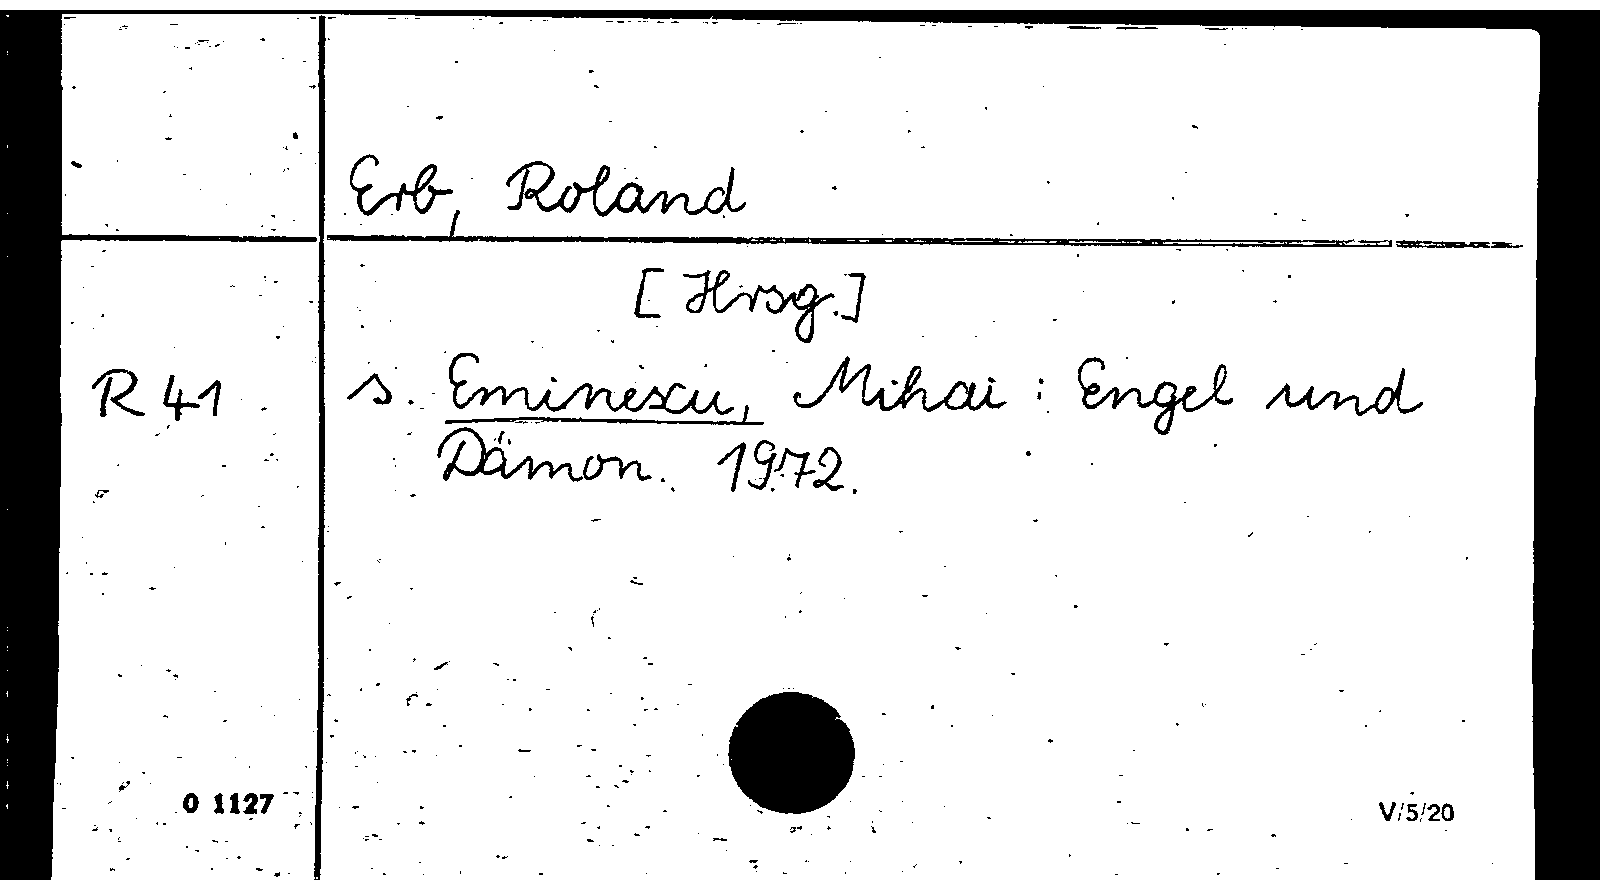 Erb, Roland
[Hrsg.]
R 41 s. Eminescu, Mihai : Engel und
Dämon. 1972.
0 1127 V/5/20